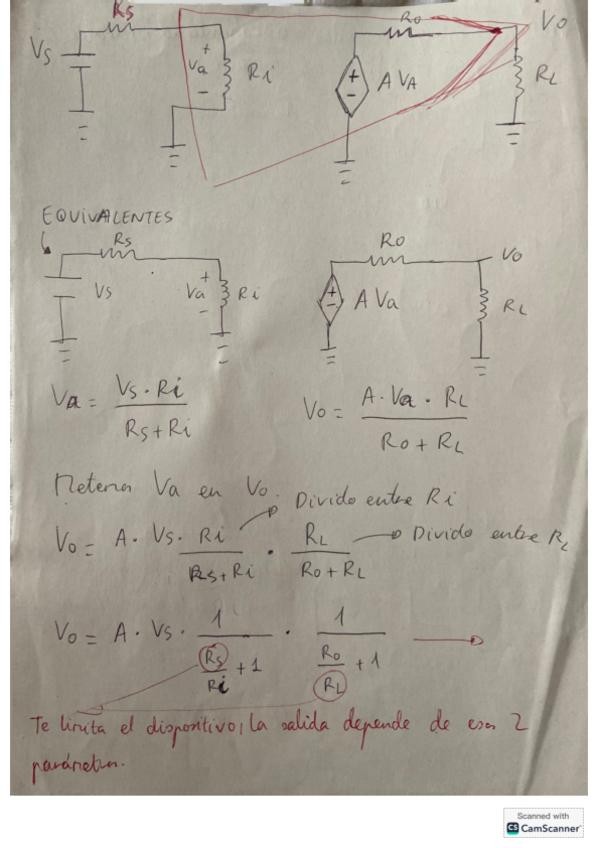 Rs Ro Vo
Vs + Va - Ri + - A VA RL
EQUIVALENTES
Rs Ro Vo
Vs Va + - Ri + - A Va RL
Va = Vs · Ri / Rs + Ri Vo = A · Va · RL / Ro + RL
Metemos Va en Vo. Divido entre Ri
Vo = A · Vs · Ri / Rs + Ri · RL / Ro + RL → Divido entre RL
Vo = A · Vs · 1 / (Rs / Ri + 1) · 1 / (Ro / RL + 1) →
Te limita el dispositivo, la salida depende de esos 2
parámetros.
Scanned with
CS CamScanner